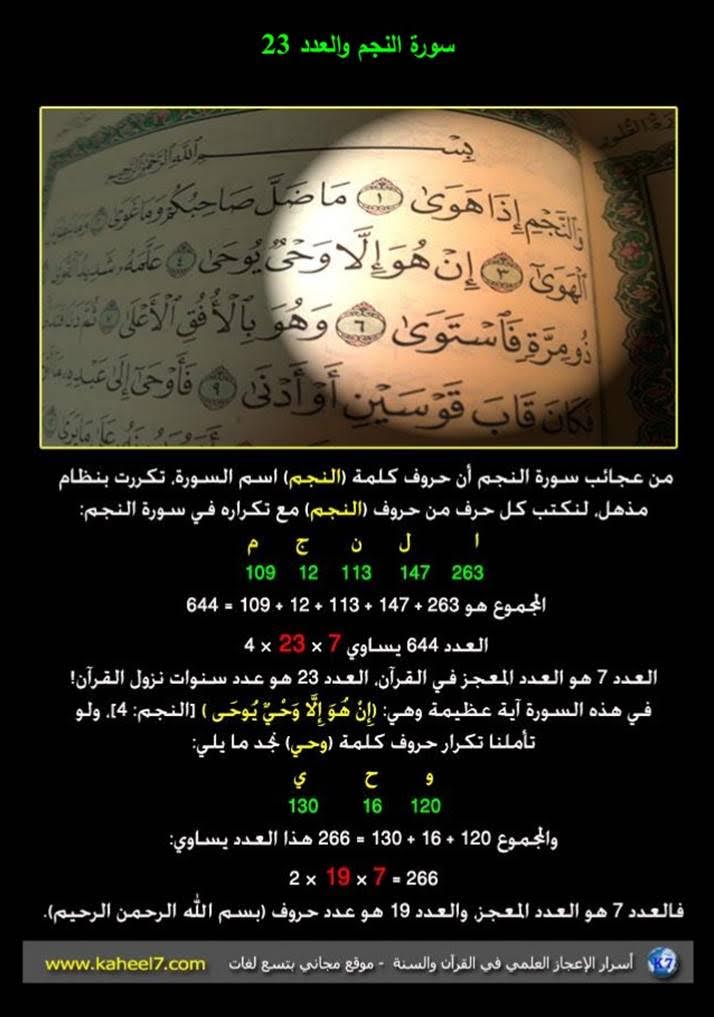 سورة النجم والعدد 23
بِسْـــمِ اللَّهِ الرَّحْمَٰنِ الرَّحِيمِ
وَالنَّجْمِ إِذَا هَوَىٰ ١ مَا ضَلَّ صَاحِبُكُمْ وَمَا غَوَىٰ
الْهَوَىٰ ٣ إِنْ هُوَ إِلَّا وَحْيٌ يُوحَىٰ ٤ عَلَّمَهُ شَدِيدُ
ذُو مِرَّةٍ فَاسْتَوَىٰ ٦ وَهُوَ بِالْأُفُقِ الْأَعْلَىٰ ٧ ثُمَّ دَنَا
فَكَانَ قَابَ قَوْسَيْنِ أَوْ أَدْنَىٰ ٩ فَأَوْحَىٰ إِلَىٰ عَبْدِهِ
من عجائب سورة النجم أن حروف كلمة (النجم) اسم السورة، تكررت بنظام
مذهل، لنكتب كل حرف من حروف (النجم) مع تكراره في سورة النجم:
ا ل ن ج م
263 147 113 12 109
المجموع هو 263 + 147 + 113 + 12 + 109 = 644
العدد 644 يساوي 7 × 23 × 4
العدد 7 هو العدد المعجز في القرآن، العدد 23 هو عدد سنوات نزول القرآن!
في هذه السورة آية عظيمة وهي: (إِنْ هُوَ إِلَّا وَحْيٌ يُوحَى) [النجم: 4]، ولو
تأملنا تكرار حروف كلمة (وحي) نجد ما يلي:
و ح ي
120 16 130
والمجموع 120 + 16 + 130 = 266 هذا العدد يساوي:
266 = 7 × 19 × 2
فالعدد 7 هو العدد المعجز، والعدد 19 هو عدد حروف (بسم الله الرحمن الرحيم).
K7 أسرار الإعجاز العلمي في القرآن والسنة - موقع مجاني بتسع لغات www.kaheel7.com